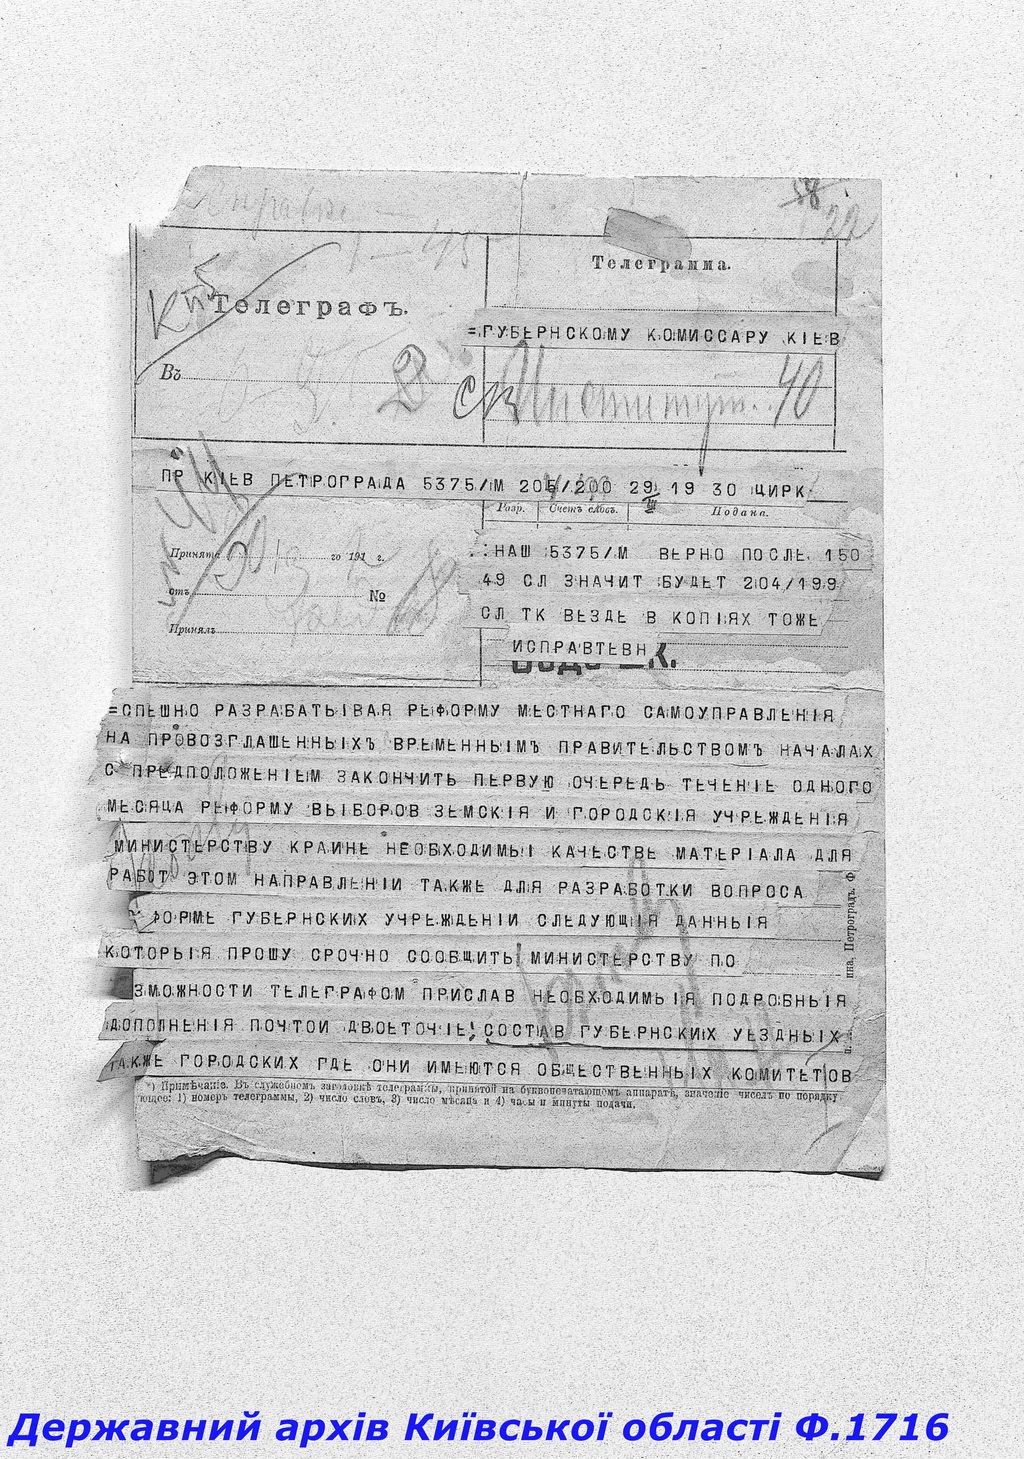 58
22
Телеграмма.
Телеграфъ.
=ГУБЕРНСКОМУ КОМИССАРУ КІЕВ
Въ
Институт. 40
ПР КІЕВ ПЕТРОГРАДА 5375/М 205/200 29 19 30 ЦИРК
Разр. Счетъ словъ. Подана.
Принята го 191 г.
отъ № 
Принялъ
НАШ 5375/М ВЕРНО ПОСЛЕ 150
49 СЛ ЗНАЧИТ БУДЕТ 204/199
СЛ ТК ВЕЗДЕ В КОПІЯХ ТОЖЕ
ИСПРАВТЕВН
=СПЕШНО РАЗРАБАТЫВАЯ РЕФОРМУ МЕСТНАГО САМОУПРАВЛЕНІЯ
НА ПРОВОЗГЛАШЕННЫХЪ ВРЕМЕННЫМЪ ПРАВИТЕЛЬСТВОМЪ НАЧАЛАХ
С ПРЕДПОЛОЖЕНІЕМ ЗАКОНЧИТЬ ПЕРВУЮ ОЧЕРЕДЬ ТЕЧЕНІЕ ОДНОГО
МЕСЯЦА РЕФОРМУ ВЫБОРОВ ЗЕМСКІЯ И ГОРОДСКІЯ УЧРЕЖДЕНІЯ
МИНИСТЕРСТВУ КРАИНЕ НЕОБХОДИМЫ КАЧЕСТВЕ МАТЕРІАЛА ДЛЯ
РАБОТ ЭТОМ НАПРАВЛЕНІИ ТАКЖЕ ДЛЯ РАЗРАБОТКИ ВОПРОСА
ФОРМЕ ГУБЕРНСКИХ УЧРЕЖДЕНІИ СЛЕДУЮЩІЯ ДАННЫЯ
КОТОРЫЯ ПРОШУ СРОЧНО СООБЩИТЬ МИНИСТЕРСТВУ ПО
ЗМОЖНОСТИ ТЕЛЕГРАФОМ ПРИСЛАВ НЕОБХОДИМЫЯ ПОДРОБНЫЯ
ДОПОЛНЕНІЯ ПОЧТОИ ДВОЕТОЧІЕ! СОСТАВ ГУБЕРНСКИХ УЕЗДНЫХ
ТАКЖЕ ГОРОДСКИХ ГДЕ ОНИ ИМЕЮТСЯ ОБЩЕСТВЕННЫХ КОМИТЕТОВ
*) Примѣчаніе. Въ служебномъ заголовкѣ телеграммы, принятой на буквопечатающемъ аппаратѣ, значеніе чиселъ по порядку
ющее: 1) номеръ телеграммы, 2) число словъ, 3) число мѣсяца и 4) часы и минуты подачи.
Петроградъ
Державний архів Київської області Ф.1716